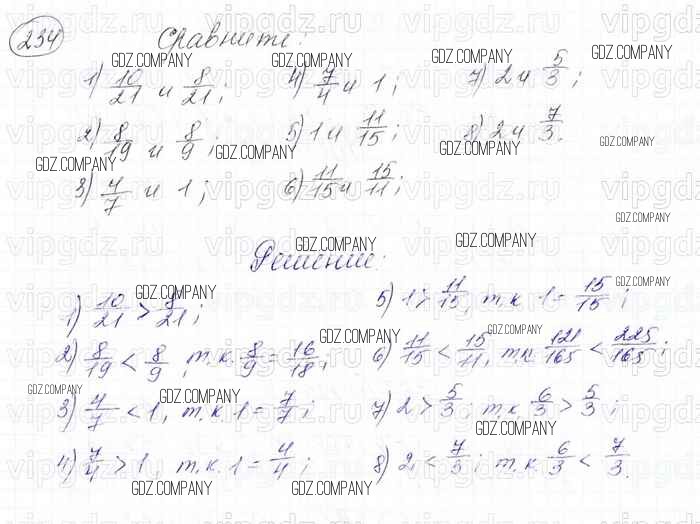 234 Сравните:
1) 10/21 и 8/21; 4) 7/4 и 1; 7) 2 и 5/3;
2) 8/19 и 8/9; 5) 1 и 11/15; 8) 2 и 7/3.
3) 4/7 и 1; 6) 11/15 и 15/11;
Решение:
1) 10/21 > 8/21; 5) 1 > 11/15, т.к 1 = 15/15;
2) 8/19 < 8/9, т.к. 8/9 = 16/18; 6) 11/15 < 15/11, т.к 121/165 < 225/165;
3) 4/7 < 1, т.к 1 = 7/7; 7) 2 > 5/3; т.к 6/3 > 5/3;
4) 7/4 > 1, т.к. 1 = 4/4; 8) 2 < 7/3; т.к. 6/3 < 7/3.
GDZ.COMPANY
vipgdz.ru